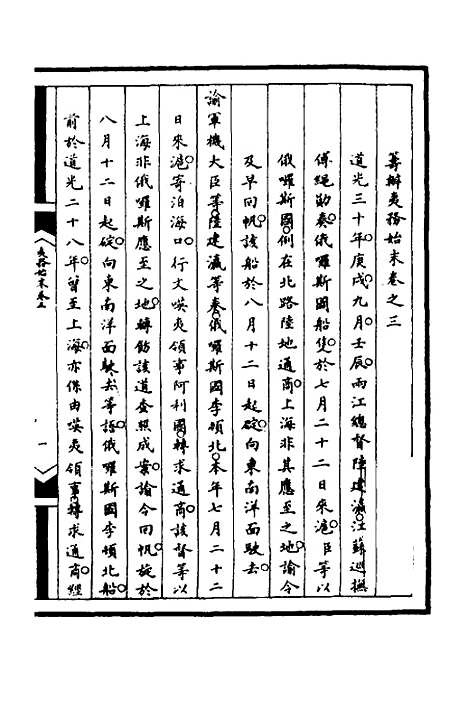 籌辦夷務始末卷之三
道光三十年庚戌九月壬辰兩江總督陸建瀛江蘇巡撫
傅繩勛奏俄囉斯國船隻於七月二十二日來滬臣等以
俄囉斯國例在北路陸地通商上海非其應至之地諭令
及早回帆該船於八月十二日起碇向東南洋面駛去
諭軍機大臣等陸建瀛等奏俄囉斯國李頓北本年七月二十二
日來滬寄泊海口行文㗲夷領事阿利國轉求通商該督等以
上海非俄囉斯應至之地轉飭該道查照成案諭令回帆旋於
八月十二日起碇向東南洋面駛去等語俄囉斯國李頓北船
前於道光二十八年曾至上海亦係由㗲夷領事轉求通商經
夷務始末卷三
一